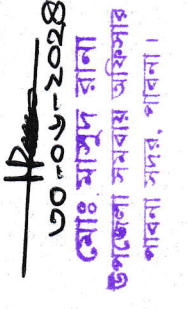 ৩০-০৬-২০২৪
মোঃ মাসুদ রানা
উপজেলা সমবায় অফিসার
পাবনা সদর, পাবনা।